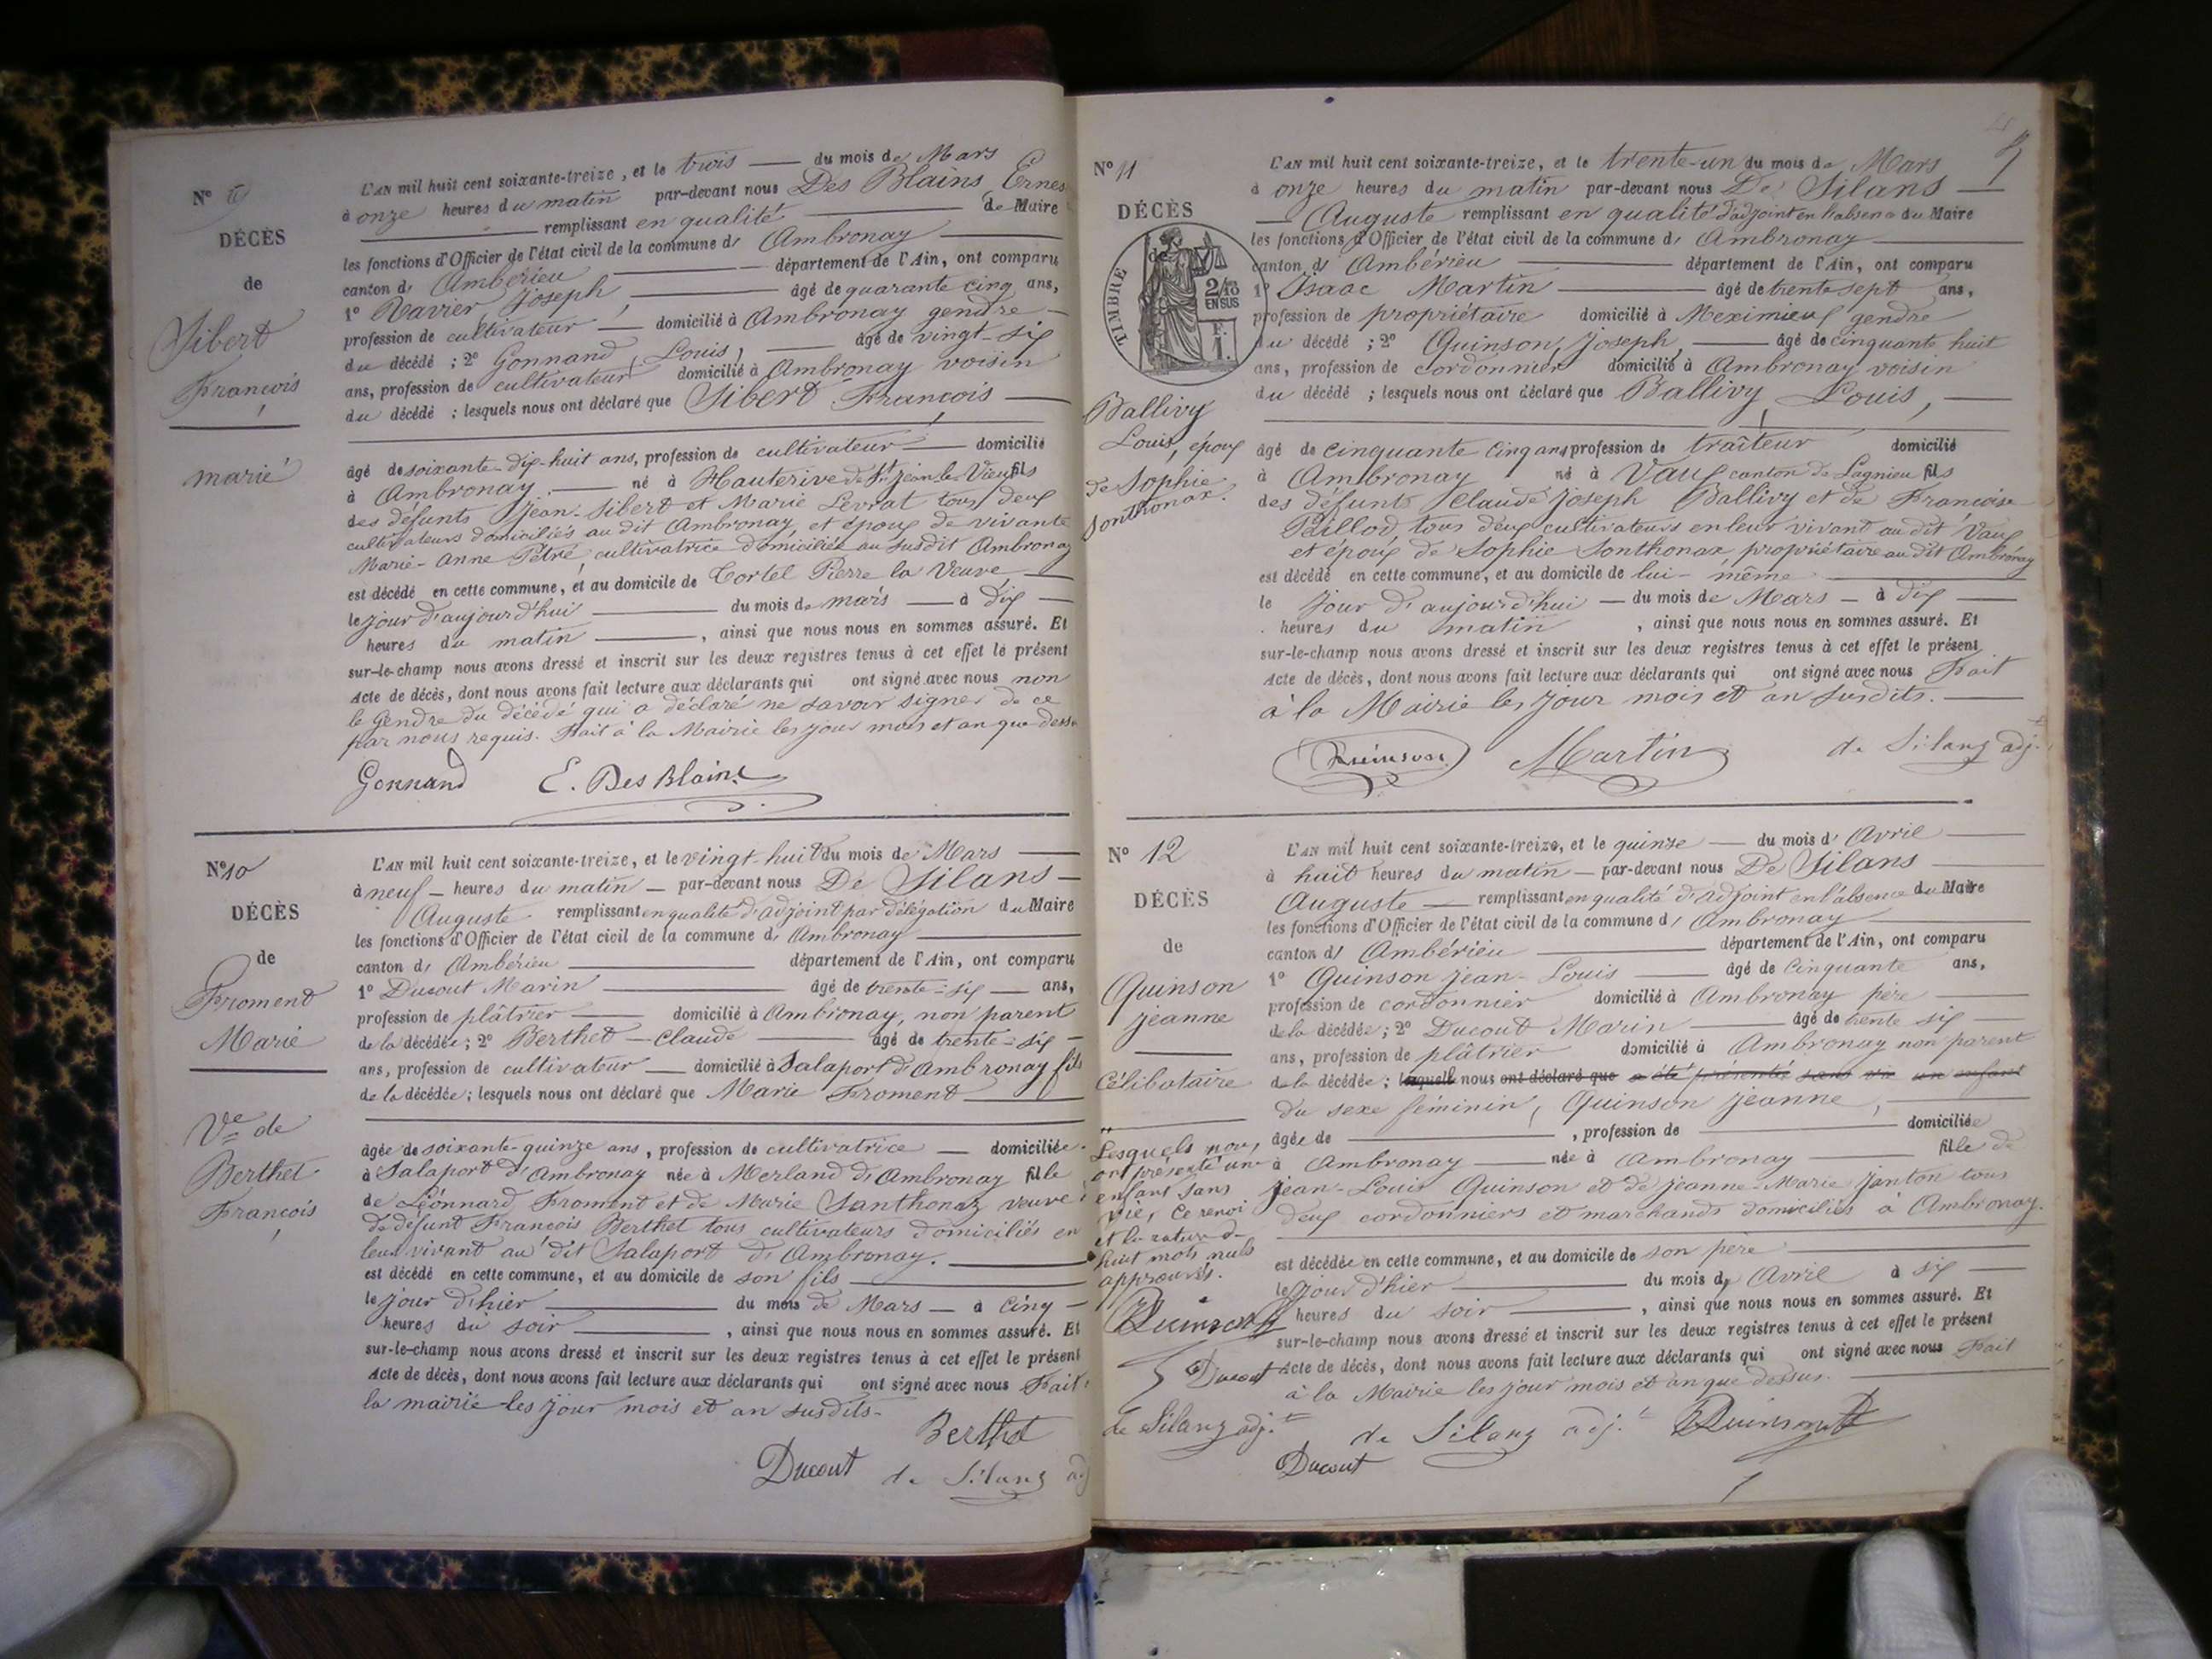 N° 9
DÉCÈS
de
Sibert
François
marié
L'AN mil huit cent soixante-treize, et le trois du mois de Mars
à onze heures du matin par-devant nous Des Blains Ernes
remplissant en qualité de Maire
les fonctions d'Officier de l'état civil de la commune d' Ambronay
canton d' Ambérieu département de l'Ain, ont comparu
1° Ravier, Joseph, âgé de quarante cinq ans,
profession de cultivateur domicilié à Ambronay gendre
du décédé ; 2° Gonnand, Louis, âgé de vingt-six
ans, profession de cultivateur domicilié à Ambronay voisin
du décédé ; lesquels nous ont déclaré que Sibert François
âgé de soixante-dix-huit ans, profession de cultivateur domicilié
à Ambronay, né à Hauterive de St Jean le Vieux fils
des défunts Jean Sibert et Marie Levrat tous deux
cultivateurs domiciliés au dit Ambronay et époux de vivante
Marie-Anne Pétré, cultivatrice domiciliée au susdit Ambronay
est décédé en cette commune, et au domicile de Tortel Pierre la Veuve
le jour d'aujourd'hui du mois de mars à dix
heures du matin, ainsi que nous nous en sommes assuré. Et
sur-le-champ nous avons dressé et inscrit sur les deux registres tenus à cet effet le présent
Acte de décès, dont nous avons fait lecture aux déclarants qui ont signé avec nous non
le gendre du décédé qui a déclaré ne savoir signer de ce
par nous requis. Fait à la Mairie les jour mois et an que dessus
Gonnand E. Des Blains
N° 10
DÉCÈS
de
Froment
Marie
Ve de
Berthet
François
L'AN mil huit cent soixante-treize, et le vingt-huit du mois de Mars
à neuf heures du matin par-devant nous De Silans
Auguste remplissant en qualité d'adjoint par délégation du Maire
les fonctions d'Officier de l'état civil de la commune d' Ambronay
canton d' Ambérieu département de l'Ain, ont comparu
1° Ducout Marin âgé de trente-six ans,
profession de plâtrier domicilié à Ambronay, non parent
de la décédée ; 2° Berthet Claude âgé de trente-six
ans, profession de cultivateur domicilié à Salaport d'Ambronay fils
de la décédée ; lesquels nous ont déclaré que Marie Froment
âgée de soixante-quinze ans, profession de cultivatrice domiciliée
à Salaport d'Ambronay née à Merland d'Ambronay fille
de Léonnard Froment et de Marie Santhonaz veuve
de défunt François Berthet tous cultivateurs domiciliés en
leur vivant au dit Salaport d'Ambronay.
est décédé en cette commune, et au domicile de son fils
le jour d'hier du mois de Mars à cinq
heures du soir, ainsi que nous nous en sommes assuré. Et
sur-le-champ nous avons dressé et inscrit sur les deux registres tenus à cet effet le présent
Acte de décès, dont nous avons fait lecture aux déclarants qui ont signé avec nous Fait
la mairie les jour mois et an susdits.
Berthet
Ducout de Silans adj
9
N° 11
DÉCÈS
de
TIMBRE
2/10
EN SUS
Ballivy
Louis, époux
de Sophie
Sonthonax.
L'AN mil huit cent soixante-treize, et le trente-un du mois de Mars
à onze heures du matin par-devant nous De Silans
Auguste remplissant en qualité d'adjoint en l'absence du Maire
les fonctions d'Officier de l'état civil de la commune d' Ambronay
canton d' Ambérieu département de l'Ain, ont comparu
1° Isaac Martin âgé de trente sept ans,
profession de propriétaire domicilié à Meximieux gendre
du décédé ; 2° Quinson, Joseph, âgé de cinquante huit
ans, profession de cordonnier domicilié à Ambronay voisin
du décédé ; lesquels nous ont déclaré que Ballivy Louis,
âgé de cinquante cinq ans profession de traiteur domicilié
à Ambronay né à Vaux canton de Lagnieu fils
des défunts Claude Joseph Ballivy et de Françoise
Billord tous deux cultivateurs en leur vivant au dit Vaux
et époux de Sophie Sonthonax propriétaire au dit Ambronay
est décédé en cette commune, et au domicile de lui-même
le jour d'aujourd'hui du mois de Mars à dix
heures du matin, ainsi que nous nous en sommes assuré. Et
sur-le-champ nous avons dressé et inscrit sur les deux registres tenus à cet effet le présent
Acte de décès, dont nous avons fait lecture aux déclarants qui ont signé avec nous Fait
à la Mairie les jour mois et an susdits.
Quinson Martin de Silans adj.t
N° 12
DÉCÈS
de
Quinson
Jeanne
Célibataire
Lesquels nous
ont présenté un
enfant sans
vie, Ce renvoi
et la rature de
huit mots nuls
approuvés.
Quinson
Ducout
de Silans adj.t
L'AN mil huit cent soixante-treize, et le quinze du mois d' Avril
à huit heures du matin par-devant nous De Silans
Auguste remplissant en qualité d'adjoint en l'absence du Maire
les fonctions d'Officier de l'état civil de la commune d' Ambronay
canton d' Ambérieu département de l'Ain, ont comparu
1° Quinson Jean-Louis âgé de cinquante ans,
profession de cordonnier domicilié à Ambronay père
de la décédée ; 2° Ducout Marin âgé de trente six
ans, profession de plâtrier domicilié à Ambronay non parent
de la décédée ; lesquels nous ont déclaré que a été présenté sans vie un enfant
du sexe féminin, Quinson Jeanne,
âgée de , profession de domiciliée
à Ambronay née à Ambronay fille de
Jean-Louis Quinson et de Jeanne-Marie Janton tous
deux cordonniers et marchands domiciliés à Ambronay.
est décédée en cette commune, et au domicile de son père
le jour d'hier du mois d' Avril à six
heures du soir, ainsi que nous nous en sommes assuré. Et
sur-le-champ nous avons dressé et inscrit sur les deux registres tenus à cet effet le présent
Acte de décès, dont nous avons fait lecture aux déclarants qui ont signé avec nous Fait
à la Mairie les jour mois et an que dessus.
de Silans adj.t Quinson
Ducout